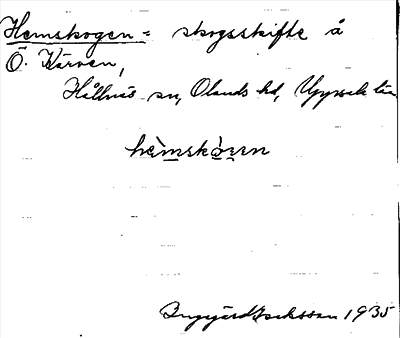 Hemskogen = skogsskifte å
Ö. Kärven,
Hållnäs sn, Olands hd, Uppsala län
hèmskò̱ gen
Ingegärd Isaksson 1935